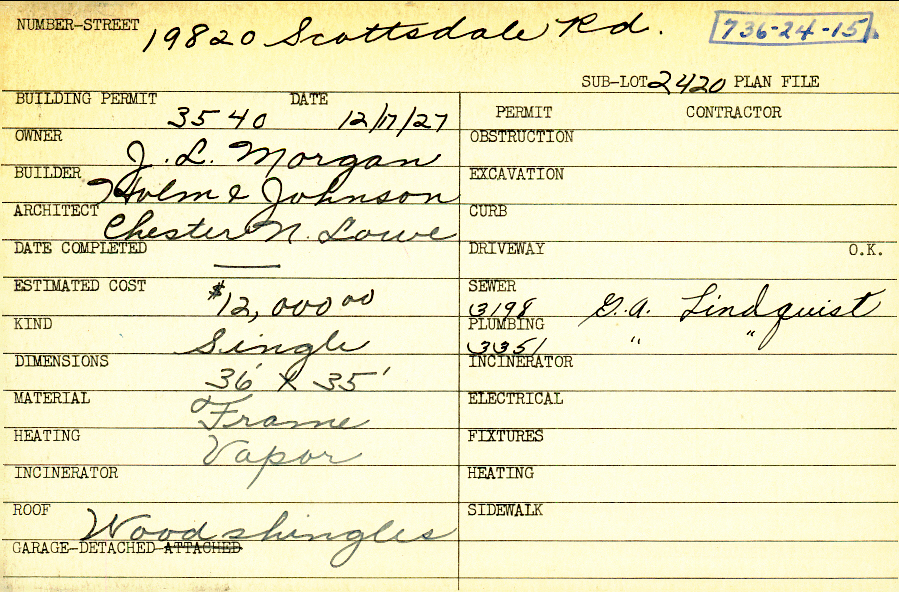 NUMBER-STREET 19820 Scottsdale Rd. 736-24-15
SUB-LOT 2420 PLAN FILE
BUILDING PERMIT 3540 DATE 12/17/27
PERMIT CONTRACTOR
OWNER J. L. Morgan
OBSTRUCTION
BUILDER Holm & Johnson
EXCAVATION
ARCHITECT Chester N. Lowe
CURB
DATE COMPLETED —
DRIVEWAY O.K.
ESTIMATED COST $12,000 00
SEWER 3198 G. A. Lindquist
KIND Single
PLUMBING 3351 " "
DIMENSIONS 36' x 35'
INCINERATOR
MATERIAL Frame
ELECTRICAL
HEATING Vapor
FIXTURES
INCINERATOR
HEATING
ROOF Wood shingles
SIDEWALK
GARAGE-DETACHED ATTACHED